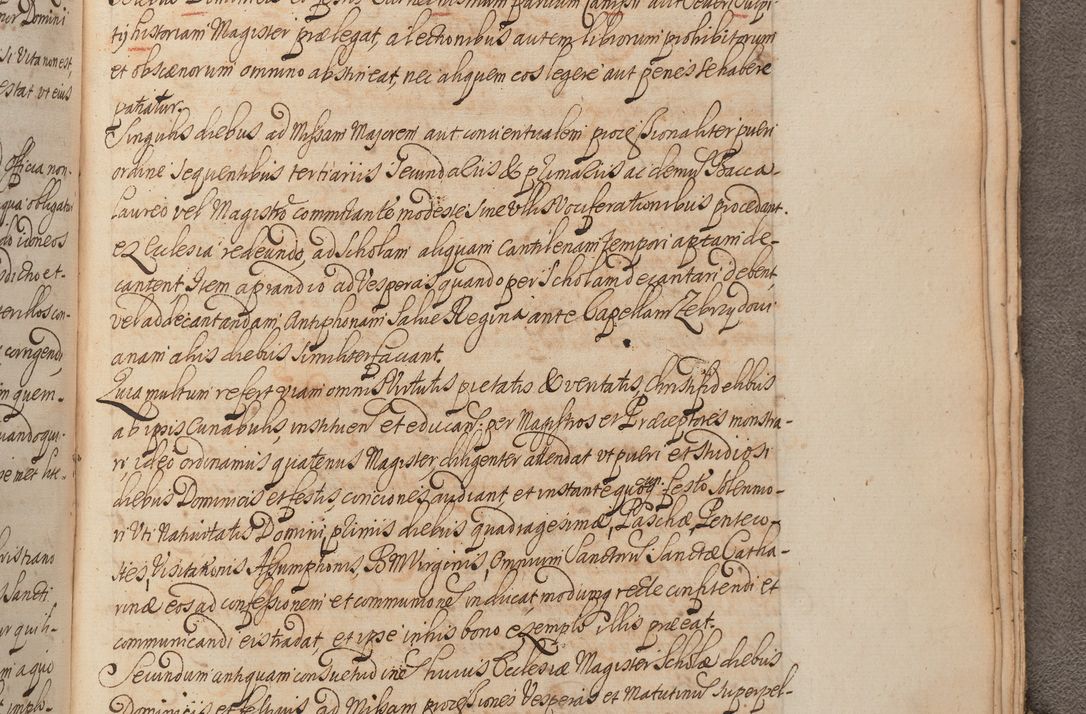 tij historiam Magister prælegat, a lectionibus autem librorum prohibitorum
et obscænorum omnino abstineat, nec aliquem eos legere aut penes se habere
patiatur.
Singulis diebus ad Missam Majorem aut conventualem processionaliter pueri
ordine sequentibus tertiariis secundariis & primariis ac demum Bacca-
laureo vel Magistro commitante modeste sine ullis vociferationibus procedant.
ex Ecclesia redeundo, ad Scholam aliquam Cantilenam tempori aptam de-
cantent Item a prandio ad Vesperas quando per Scholam decantari debent,
vel ad decantandam Antiphonam Salve Regina ante Capellam Zebrzydovi
anam aliis diebus similiter faciant.
Quia multum refert viam omnis Virtutis pietatis & veritatis, Christifidelibus
ab ipsis cunabulis, instituen et educan: per Magistros et Præceptores monstra-
ri ideo ordinamus quatenus Magister diligenter attendat ut pueri et studiosi
diebus Dominicis et festis, conciones audiant et instante quoq festo solennio-
ri Uti Nativitatis Domini, primis diebus quadragesimæ, Paschæ, Penteco-
stes, Visitationis Assumptionis, B M Virginis, Omnium Sanctorum Sanctæ Catha-
rinæ eos ad confessionem et communionem inducat modumq recte confitendi et
communicandi eis tradat, et ipse in his bono exemplo illis præeat.
Secundum antiquam consuetudinem huius Ecclesiæ Magister Scholæ diebus
Dominicis et festivis ad Missam processiones Vesperas et Matutinum superpel-
ner Domini
si Vita non est,
estat ut eius
officia non-
qua obligatur
ad idoneos
dicto et-
terillos con-
corrigendi
m quem-
uandoqu-
Sancti
ur qui li-
m a quo